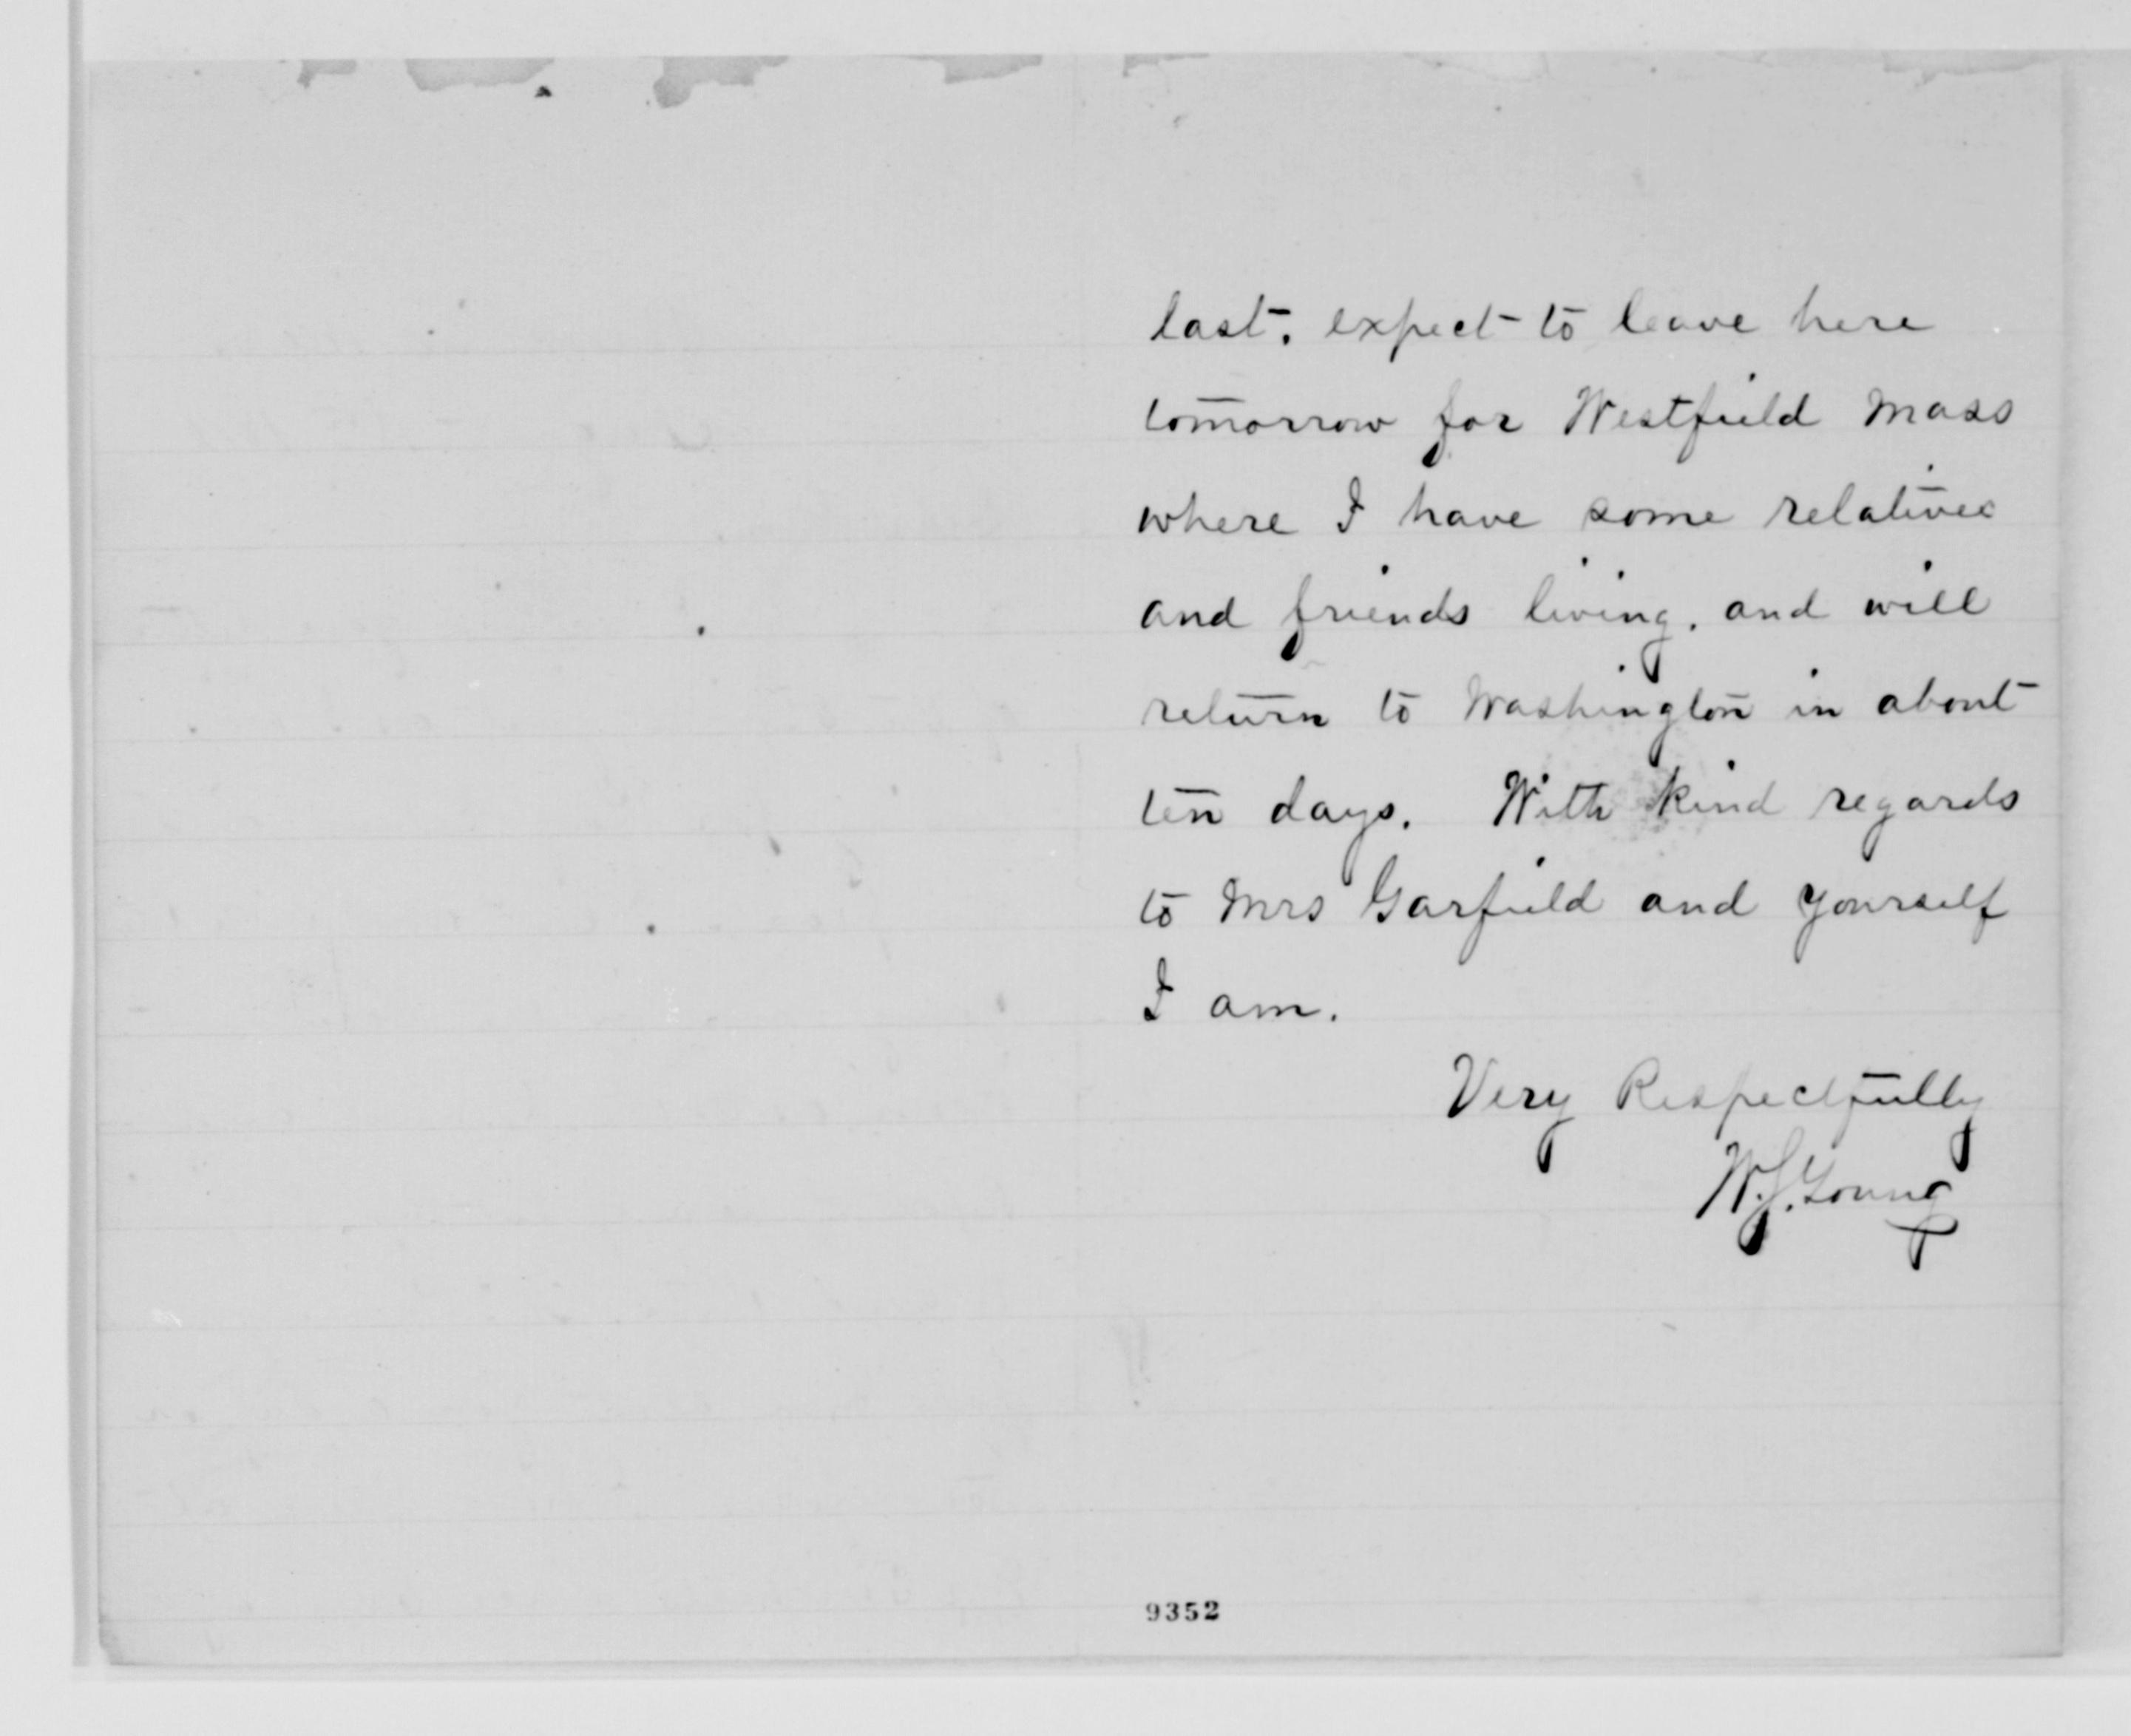 last. expect to leave here
tomorrow for Westfield Mass
where I have some relatives
and friends living. and will
return to Washington in about
ten days. With kind regards
to Mrs Garfield and yourself
I am.
Very Respectfully
W.S. Young
9352